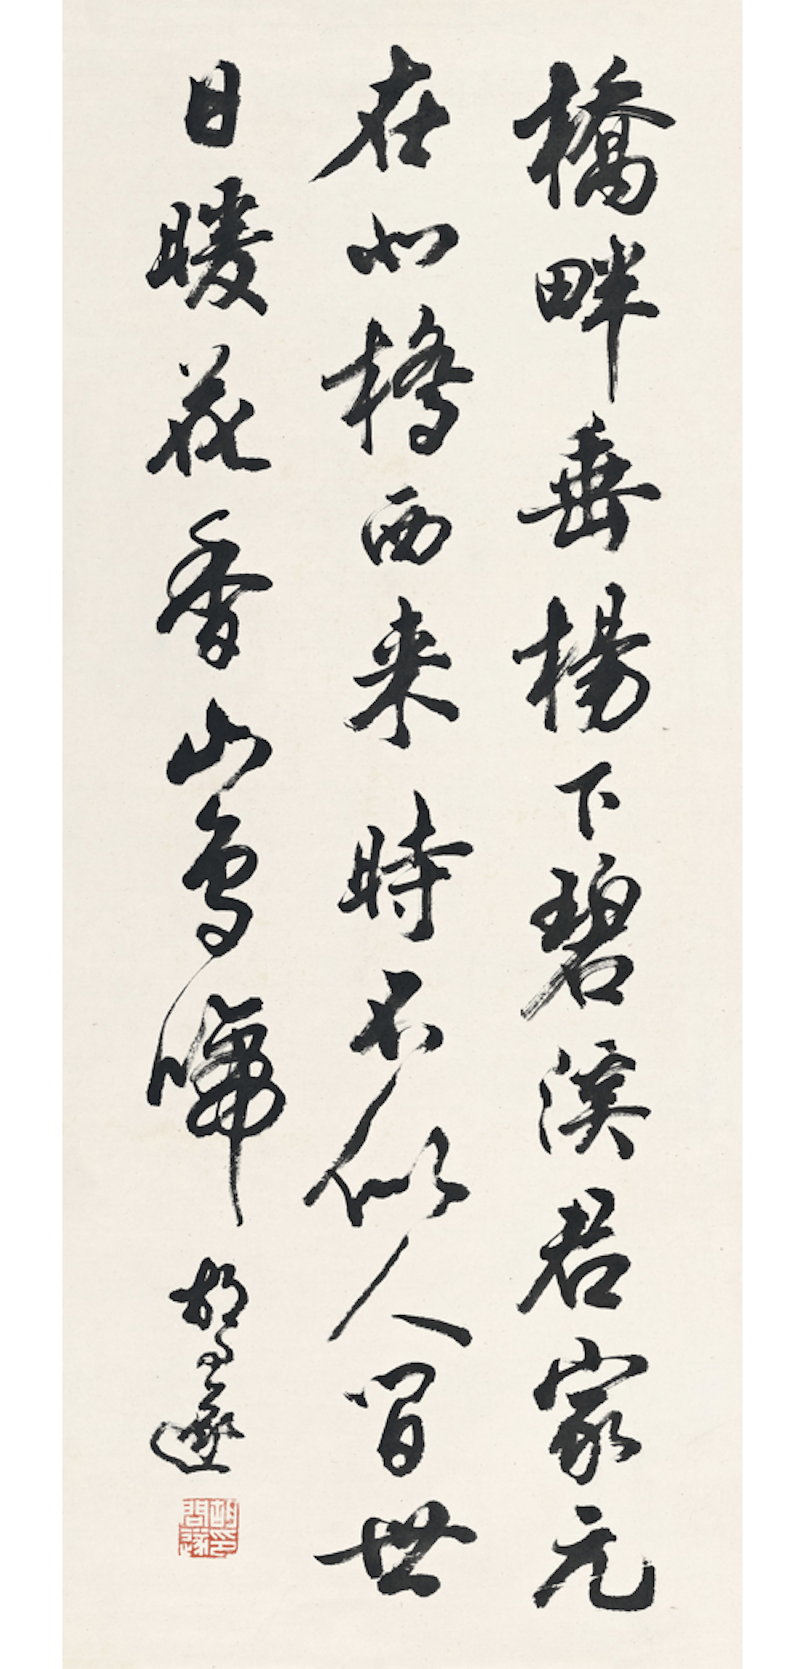 橋畔垂楊下碧溪君家元
在北橋西来時不似人間世
日暖花香山鳥啼
胡問遂
胡問遂印